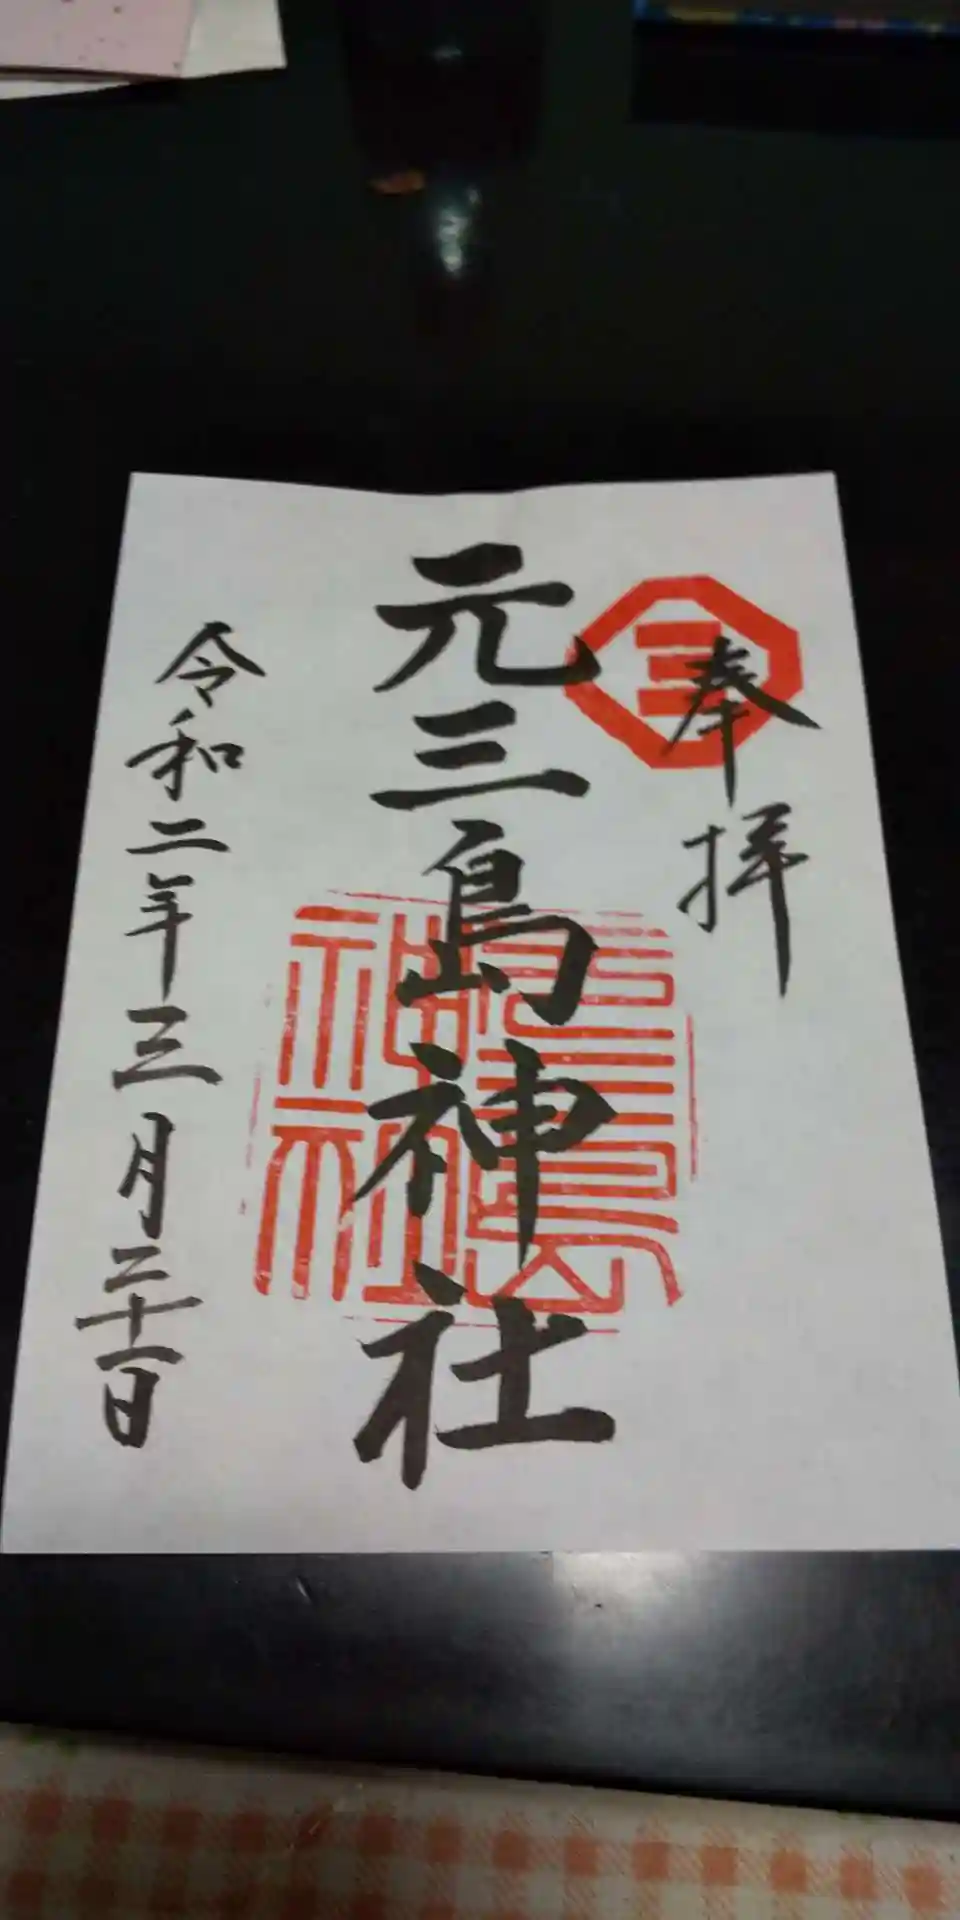 奉拝
三
元三島神社
元三島神社
令和二年三月二十一日